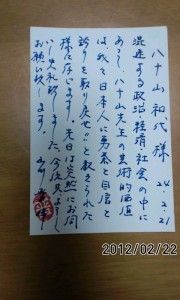 八十山和代様
24.2.21
混迷する政治・経済・社会の中に
あって、八十山先生の芸術的価値
は、我々日本人に勇気と自信と
誇りを取り戻せ。と教えられた
様に存じます。先日は突然にお伺
いし失礼致しました。今後共よろしく
お願い致します。
2012/02/22